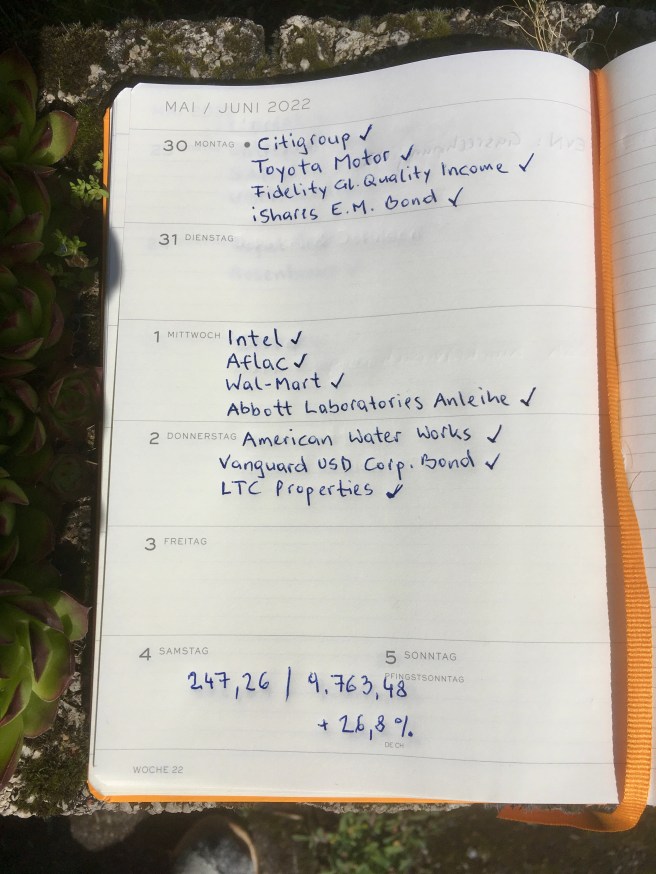 MAI / JUNI 2022
30 MONTAG • Citigroup ✓
Toyota Motor ✓
Fidelity Gl. Quality Income ✓
iShares E.M. Bond ✓
31 DIENSTAG
1 MITTWOCH Intel ✓
Aflac ✓
Wal-Mart ✓
Abbott Laboratories Anleihe ✓
2 DONNERSTAG American Water Works ✓
Vanguard USD Corp. Bond ✓
LTC Properties ✓
3 FREITAG
4 SAMSTAG
5 SONNTAG
PFINGSTSONNTAG
247,26 | 9.763,48
+ 26,8 %
DE CH
WOCHE 22